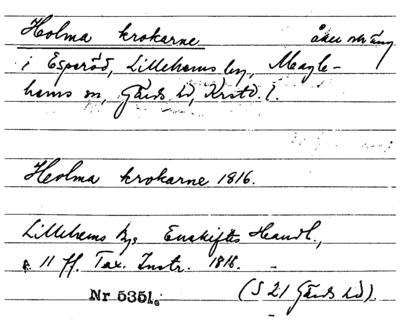 Holma krokarne åker o äng
i Esperöd, Lillehems by, Magle-
hems sn, Gärds hd, Krstd. l.
Holma krokarne 1816.
Lillehems bys Enskiftes Handl.,
s. 11 ff. Tax. Instr. 1816.
Nr 5351. (S 21 Gärds hd).